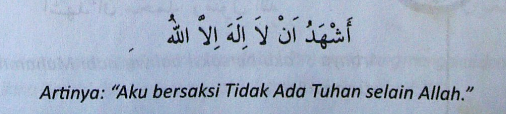 أَشْهَدُ اَنْ لاَ اِلَهَ اِلاَّ اللهُ
Artinya: “Aku bersaksi Tidak Ada Tuhan selain Allah.”